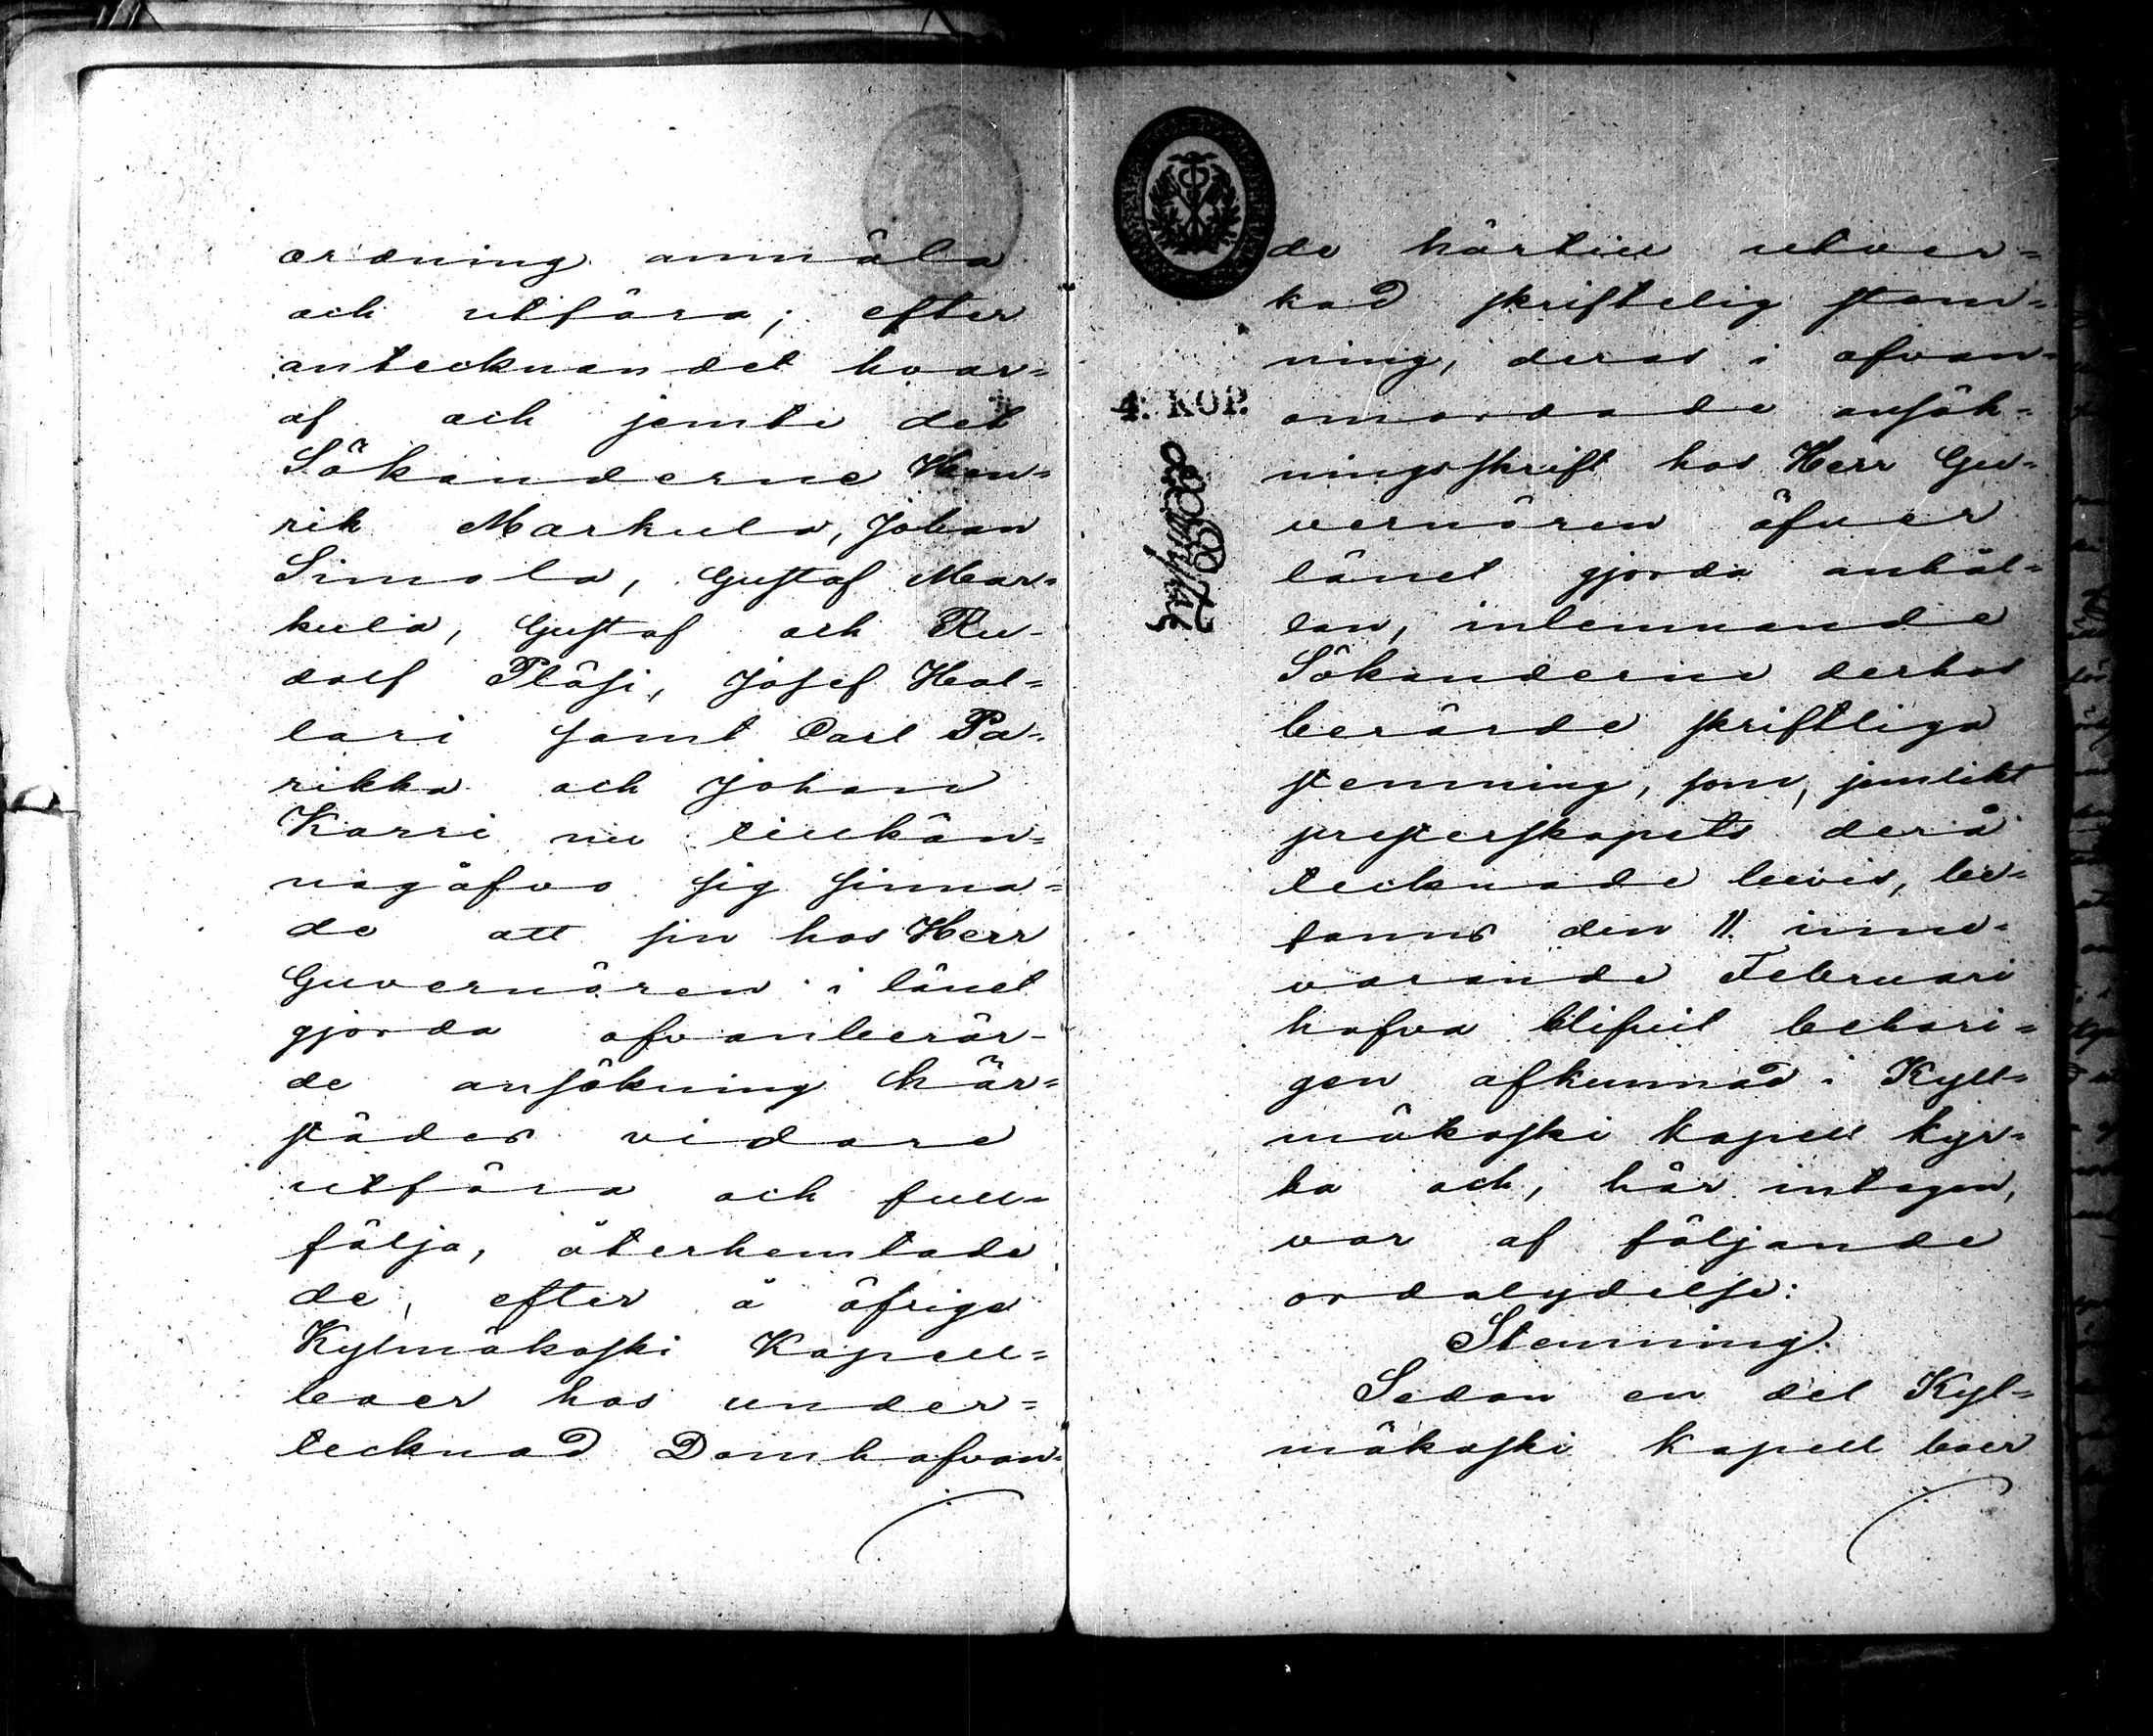 ordning anmäla
och utföra; efter
antecknandet hvar=
af och jemte det
Sökanderne Hen=
rik Markula, Johan
Simola, Gustaf Mar=
kula, Gustaf och Ru-
dolf Pläsi, Josef Hol=
lari samt Carl Pa-
rikka och Johan
Karri nu tillkän=
nagåfvo sig sinna=
de att sin hos Herr
Guvernören i länet
gjorda ofvanberör-
de ansökning här=
städes vidare
utföra och full=
följa, återhemtade
de, efter å öfriga
Kylmäkoski Kapell=
boer hos under=
tecknad Domhafvan=
de härtill utver=
kad skriftelig stäm=
ning, deras i ofvan=
omordade ansök=
ningsskrift hos Herr Gu=
vernören öfver
länet gjorda anhål=
lan, inlemnande
Sökanderne derhos
berörde skriftliga
stemning, som, jemlikt
presterskapets derå
tecknade bevis, be=
fanns den 11 inne-
varande Februari
hafva blifvit behöri=
gen afkunnad i Kyll=
mäkoski kapell kyr=
ka och, här intagen,
var af följande
ordalydelse:
Stemning.
Sedan en del Kyl=
mäkoski kapell boer
4: KOP.